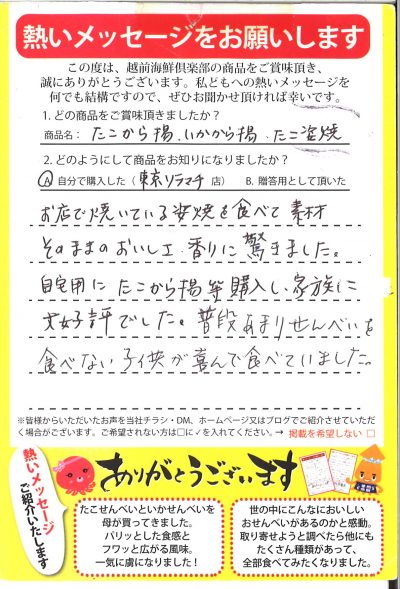 熱いメッセージをお願いします
この度は、越前海鮮倶楽部の商品をご賞味頂き、
誠にありがとうございます。私どもへの熱いメッセージを
何でも結構ですので、ぜひお聞かせ頂ければ幸いです。
1. どの商品をご賞味頂きましたか?
商品名: たこから揚、いかから揚、たこ姿焼
2. どのようにして商品をお知りになりましたか?
A 自分で購入した (東京ソラマチ 店) B. 贈答用として頂いた
お店で焼いている姿焼を食べて 素材
そのままのおいしエ・香りに驚きました。
自宅用に たこから揚等購入し、家族に
大好評でした。普段あまりせんべいを
食べない子供が喜んで食べていました。
※皆様からいただいたお声を当社チラシ・DM、ホームページ又はブログでご紹介させていただ
く場合がございます。ご希望されない方は□に✓を入れてください。→ 掲載を希望しない □
熱いメッセージ
ご紹介いたします
ありがとうございます
たこせんべいといかせんべいを
母が買ってきました。
パリッとした食感と
フワッと広がる風味。
一気に虜になりました!
世の中にこんなにおいしい
おせんべいがあるのかと感動。
取り寄せようと調べたら他にも
たくさん種類があって、
全部食べてみたくなりました。